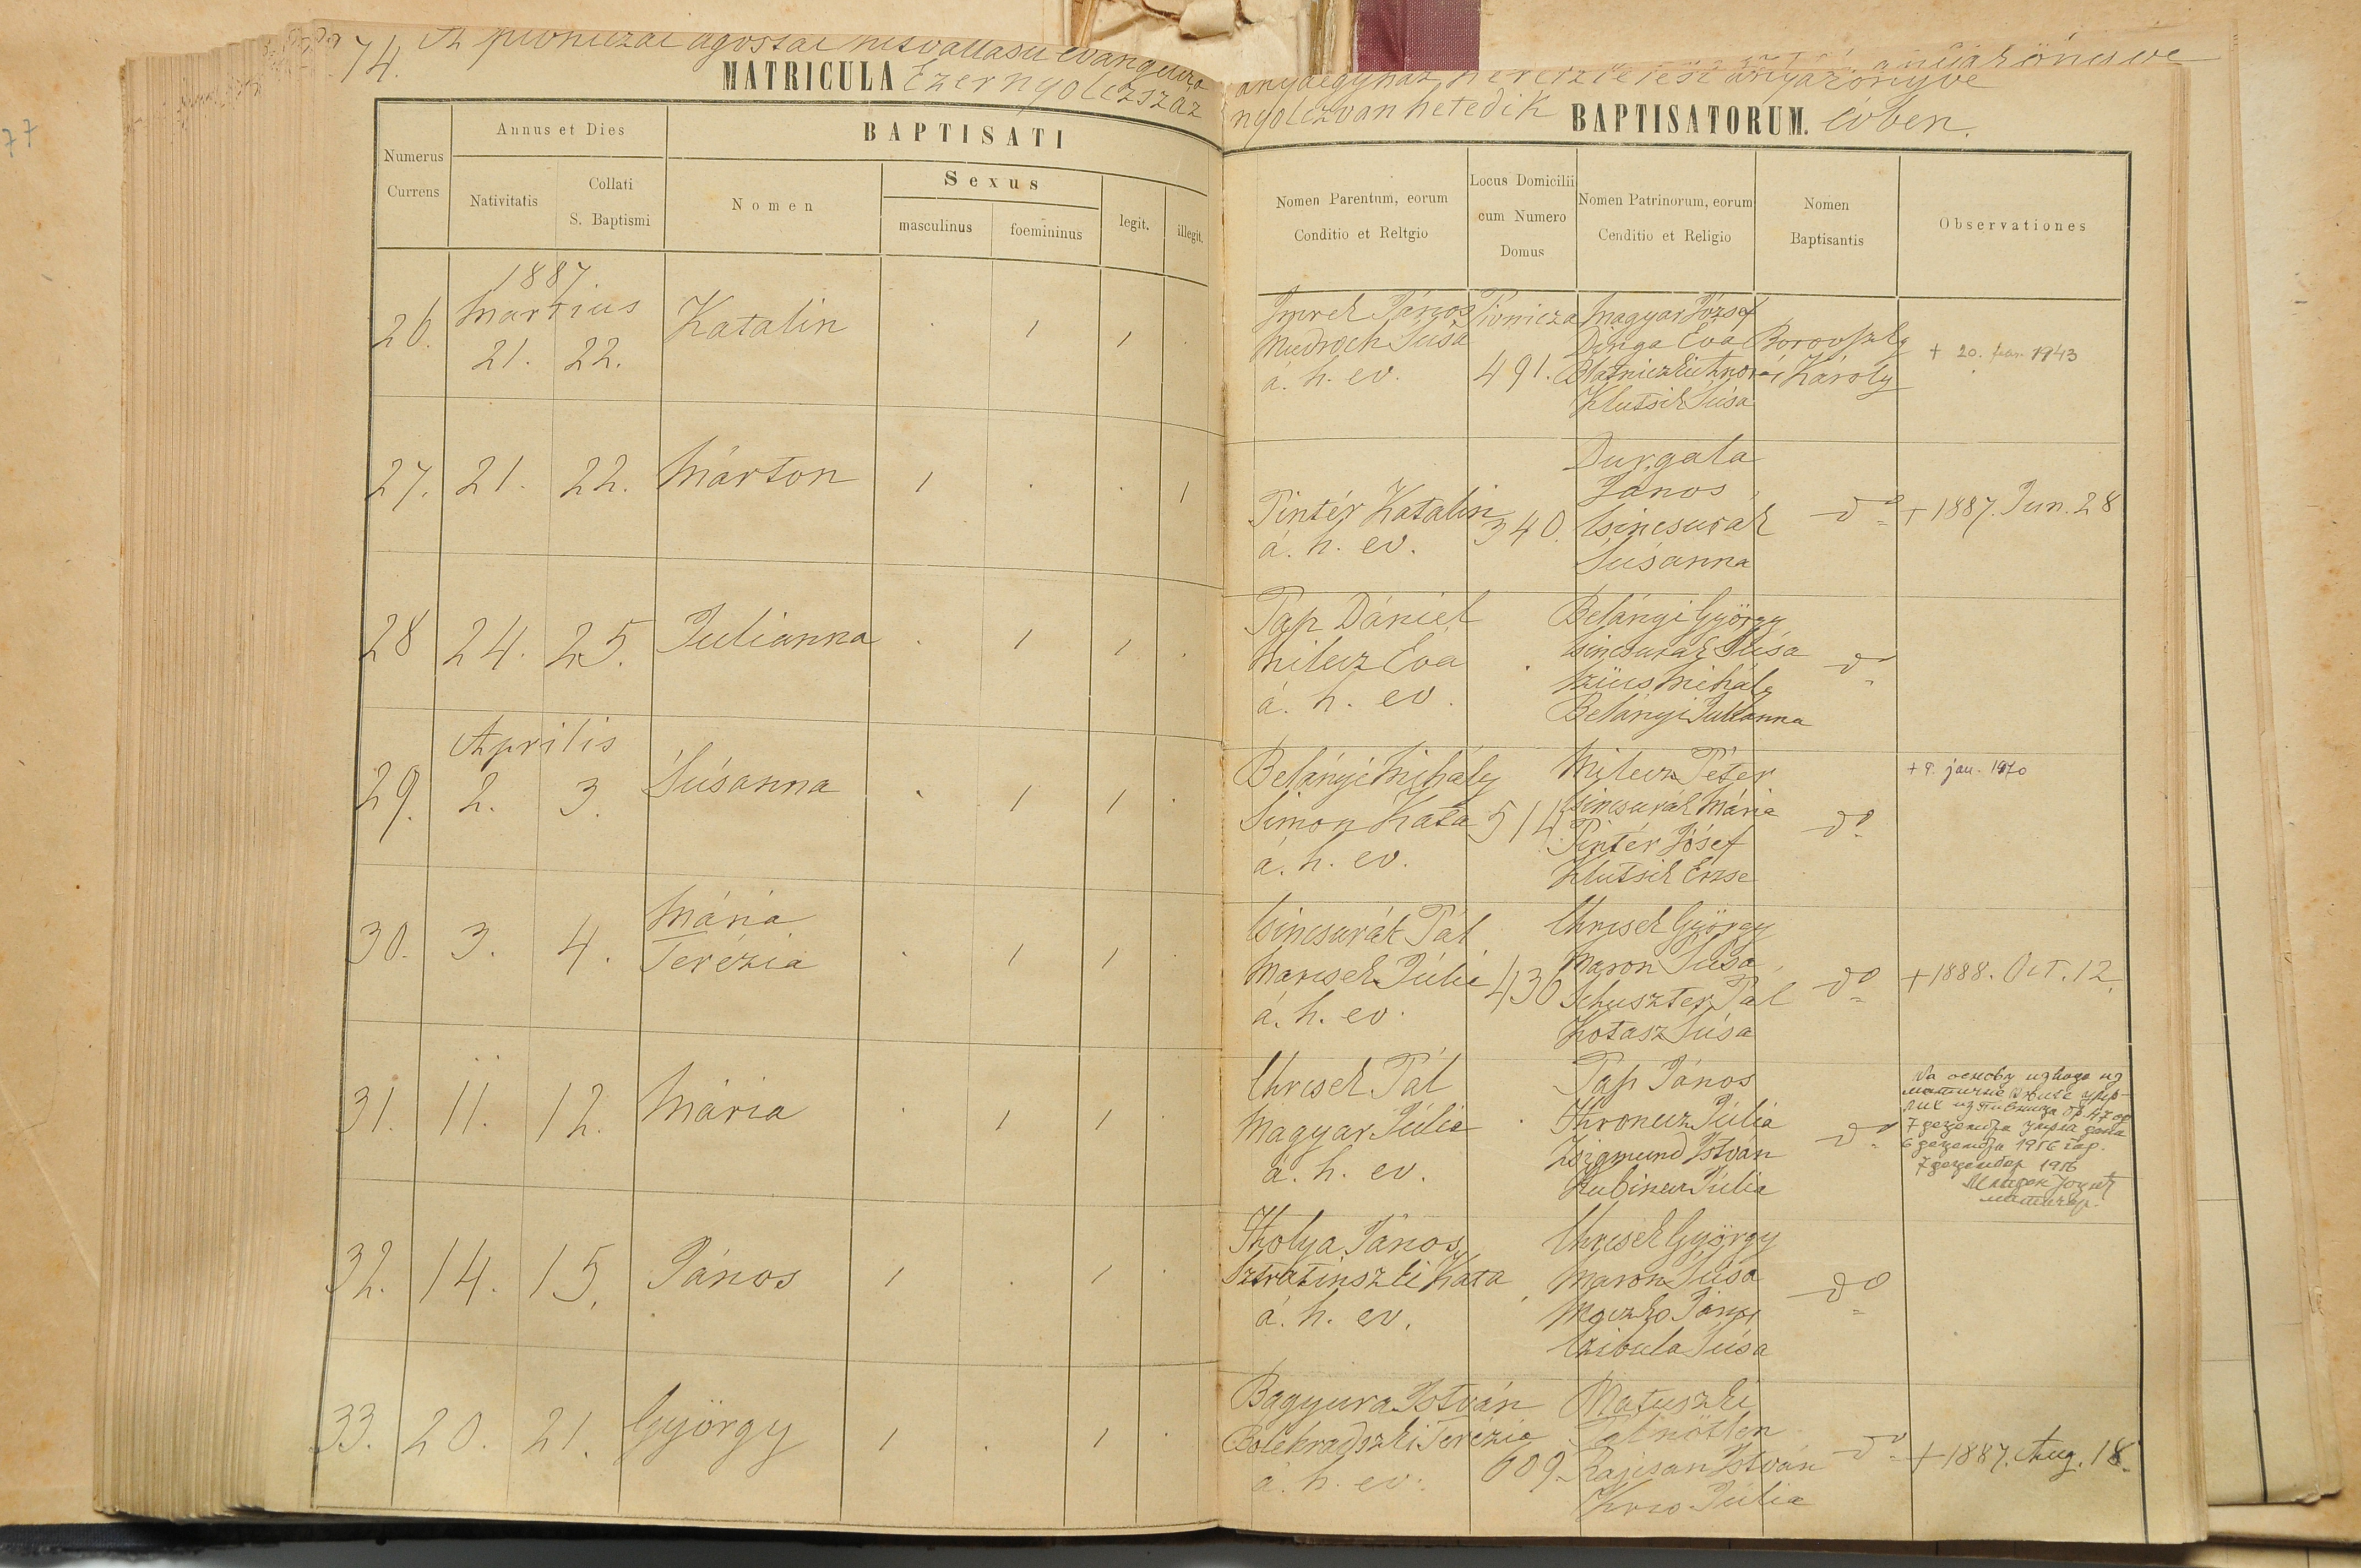 77
74. A pivniczai ágostai hitvallású evangelizo
anyaegyház keresztelési anyakönyve
anyakönyve
MATRICULA Ezernyolczszáz
nyolczvanhetedik BAPTISATORUM. évben.
Numerus
Currens
Annus et Dies
Nativitatis
Collati
S. Baptismi
BAPTISATI
Nomen
Sexus
masculinus
foemininus
legit.
illegit.
Nomen Parentum, eorum
Conditio et Reltgio
Locus Domicilii
cum Numero
Domus
Nomen Patrinorum, eorum
Cenditio et Religio
Nomen
Baptisantis
Observationes
1887.
Martius
26. 21. 22. Katalin . 1 1 .
Imrek János
Mudroch Súsa
á. h. ev.
Pivnicza
491.
Magyar József
Dinga Éva
Blatniczki
Klutsik Súsa
Borovszky
Károly
+ 20. jan. 1943
27. 21. 22. Márton 1 . . 1
Pintér Katalin
á. h. ev.
340.
Durgala
János
Csincsurak
Súsanna
do
+ 1887. Jun. 28
28 24. 25. Julianna . 1 1 .
Pap Dániel
Milecz Éva
á. h. ev.
Belányi György
Csincsurak Súsa
Szücs Mihály
Belányi Julianna
do
Aprilis
29. 2. 3. Súsanna . 1 1 .
Belányi Mihály
Simon Kata
á. h. ev.
514
Milecz Péter
Csincsurák Mária
Pintér Jósef
Klutsik Erzse
do
+ 9. jan. 1970
30. 3. 4. Mária
Terézia . 1 1 .
Csincsurák Pál
Marcsek Júlia
á. h. ev.
436
Chrcsek György
Maron Súsa
Schuszter Pal
Kotasz Súsa
do
+ 1888. Oct. 12.
31. 11. 12. Mária . 1 1 .
Chrcsek Pál
Magyar Júlia
á. h. ev.
Pap János
Júlia
Zsigmund István
Júlia
do
На основу извода из
матичне књиге умр-
лих из Пивница бр. 47 од
7 децембра умрла дана
6 децембра 1956 год.
7 децембар 1956
матичар.
32. 14. 15. János 1 . 1 .
János
Sztratinszki Kata
á. h. ev.
Chrcsek György
Maron Súsa
Moczko János
Czibula Súsa
do
33. 20. 21. György 1 . 1 .
Bagyura István
Bolehradszki Terézia
á. h. ev.
609.
Matuszki
Pál nőtlen
Rajcsan István
Júlia
do
+ 1887. Aug. 18.